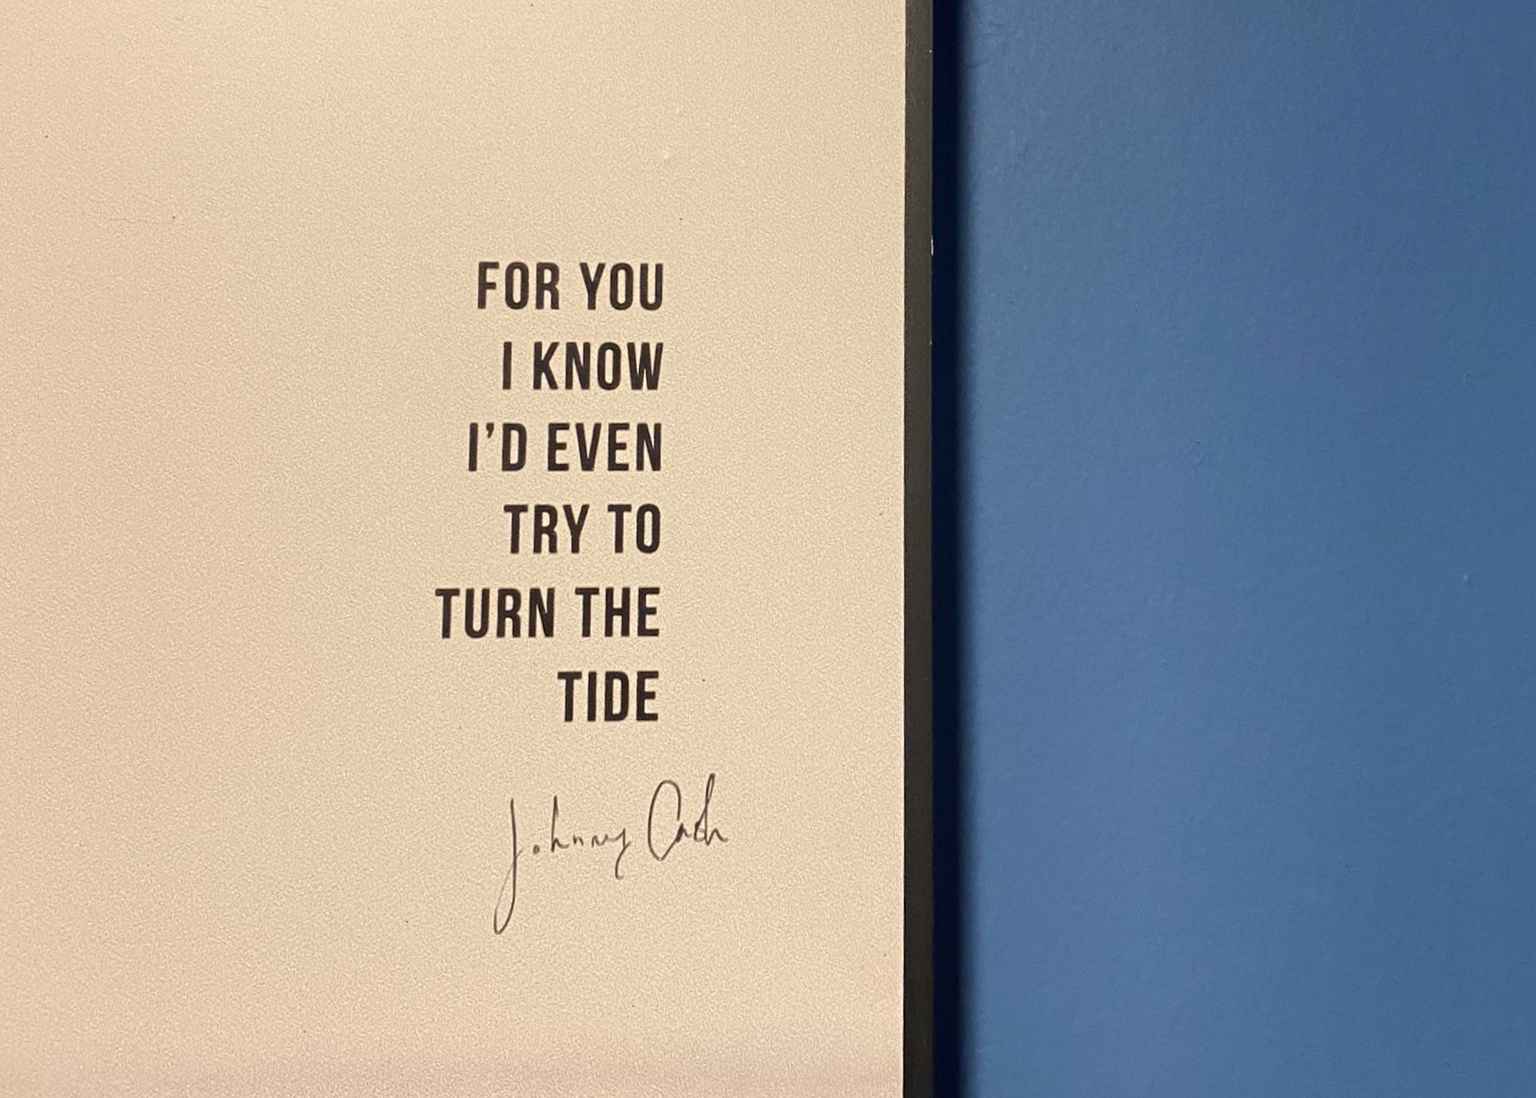 FOR YOU
I KNOW
I'D EVEN
TRY TO
TURN THE
TIDE
Johnny Cash